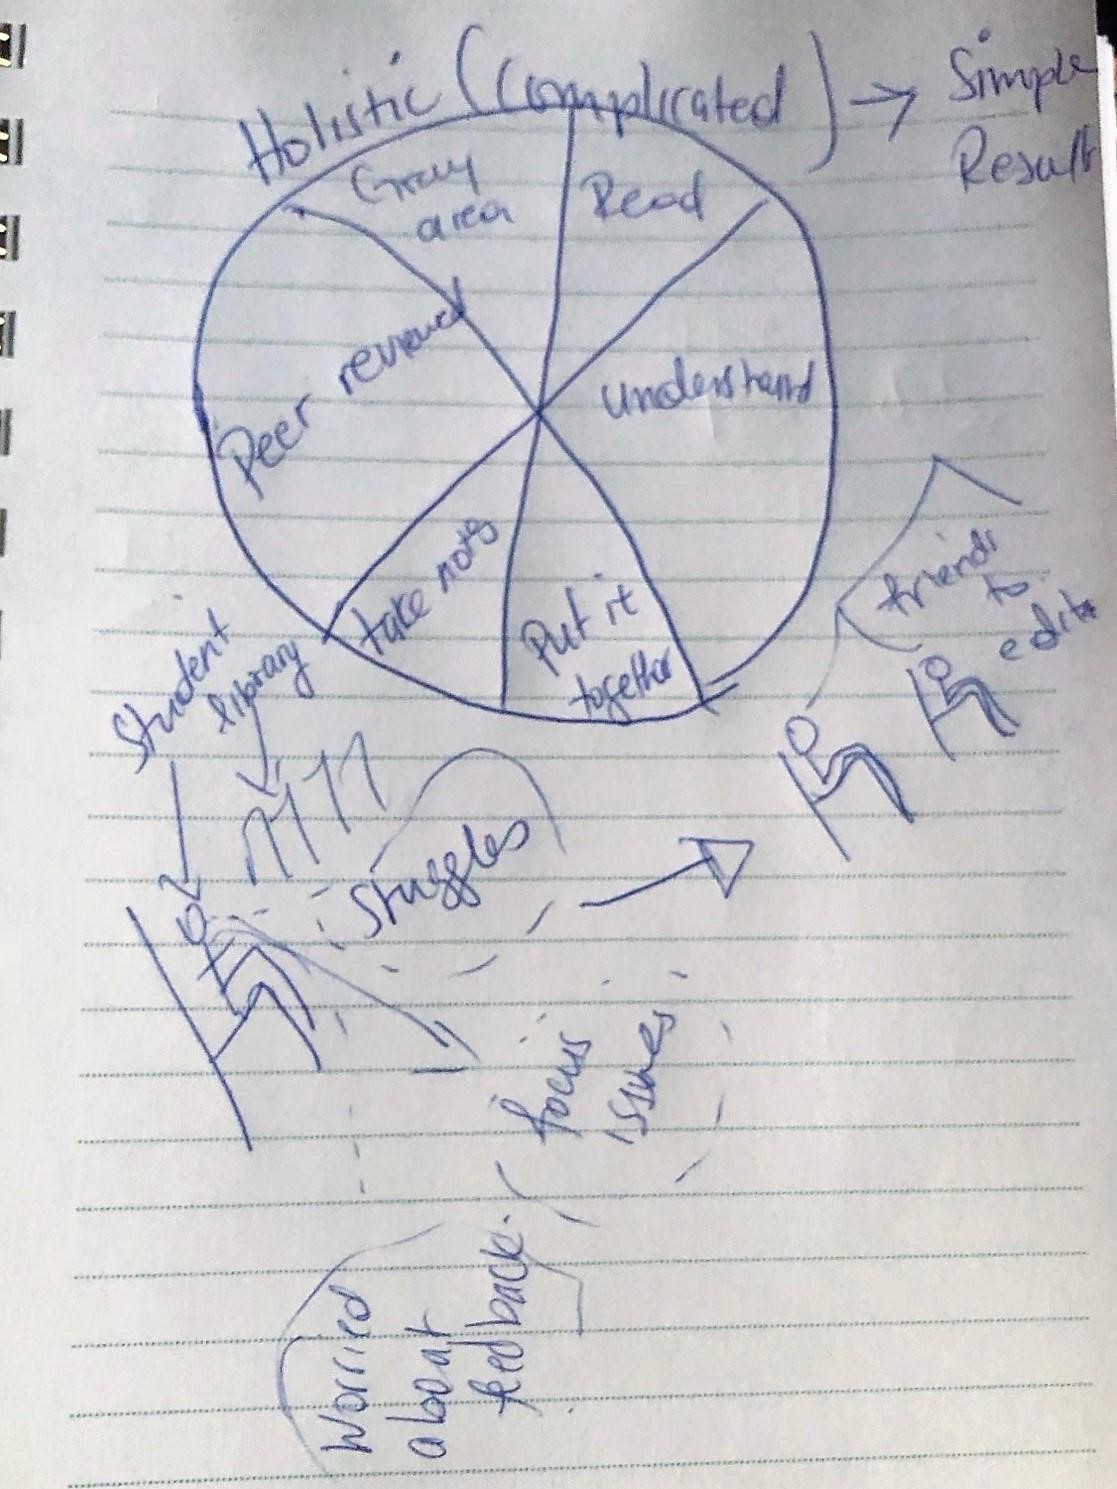 Holistic (Complicated) → Simple
Result
Gray
area
Read
Peer reviewed
understand
take notes
Put it
together
friends
to
edit
Student
library
struggles
focus
issues
Worried
about
feedback